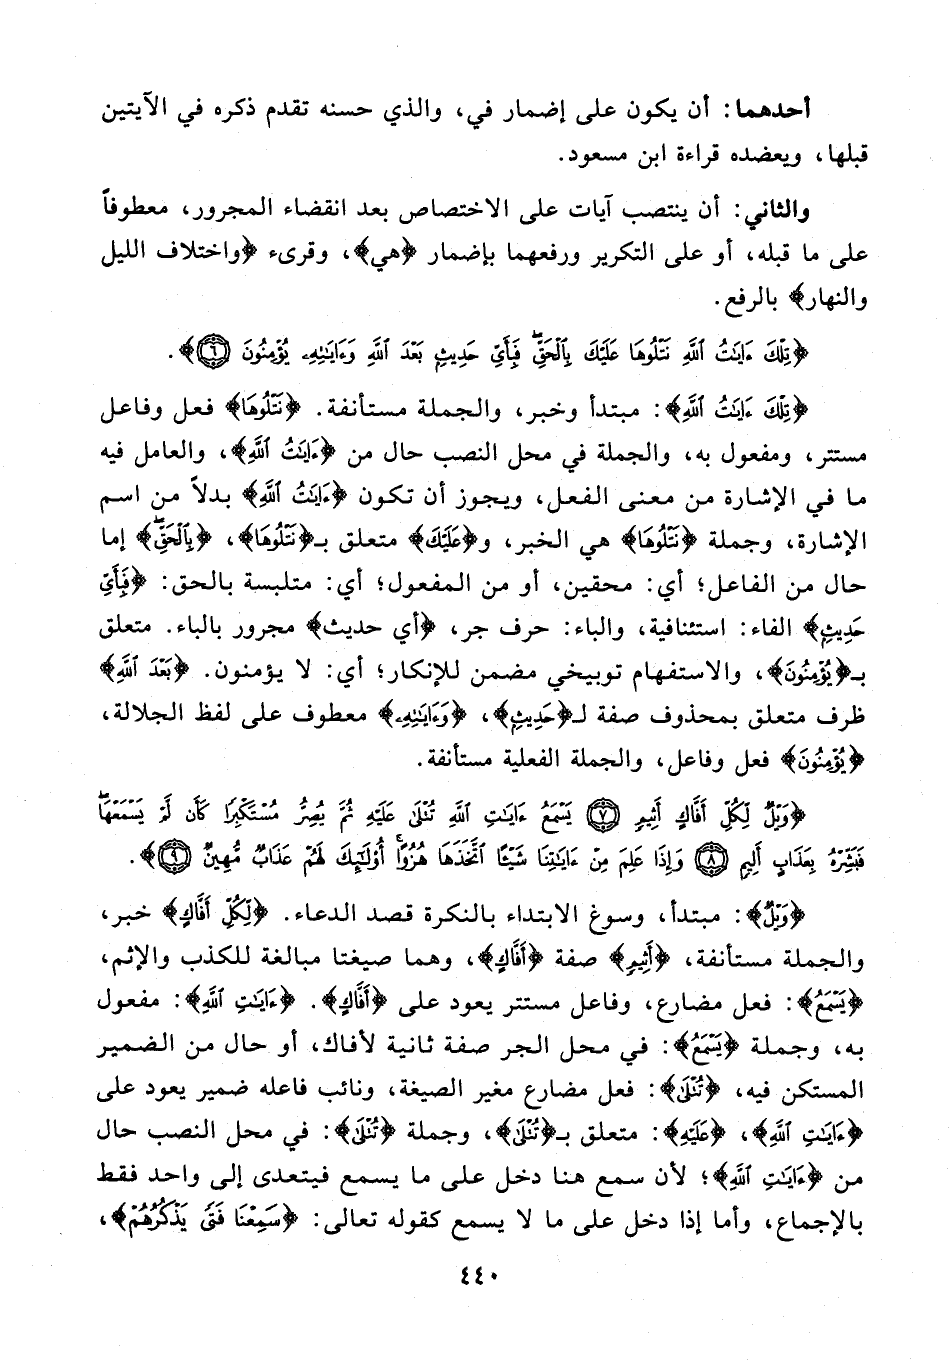 أحدهما: أن يكون على إضمار في، والذي حسنه تقدم ذكره في الآيتين
قبلها، ويعضده قراءة ابن مسعود.
والثاني: أن ينتصب آيات على الاختصاص بعد انقضاء المجرور، معطوفاً
على ما قبله، أو على التكرير ورفعهما بإضمار ﴿هي﴾، وقرىء ﴿واختلاف الليل
والنهار﴾ بالرفع.
﴿تِلْكَ ءَايَٰتُ ٱللَّهِ نَتْلُوهَا عَلَيْكَ بِٱلْحَقِّۖ فَبِأَيِّ حَدِيثٍۭ بَعْدَ ٱللَّهِ وَءَايَٰتِهِۦ يُؤْمِنُونَ ٦﴾.
﴿تِلْكَ ءَايَٰتُ ٱللَّهِ﴾: مبتدأ وخبر، والجملة مستأنفة. ﴿نَتْلُوهَا﴾ فعل وفاعل
مستتر، ومفعول به، والجملة في محل النصب حال من ﴿ءَايَٰتُ ٱللَّهِ﴾، والعامل فيه
ما في الإشارة من معنى الفعل، ويجوز أن تكون ﴿ءَايَٰتُ ٱللَّهِ﴾ بدلاً من اسم
الإشارة، وجملة ﴿نَتْلُوهَا﴾ هي الخبر، و﴿عَلَيْكَ﴾ متعلق بـ﴿نَتْلُوهَا﴾، ﴿بِٱلْحَقِّۖ﴾ إما
حال من الفاعل؛ أي: محقين، أو من المفعول؛ أي: متلبسة بالحق: ﴿فَبِأَيِّ
حَدِيثٍ﴾ الفاء: استئنافية، والباء: حرف جر، ﴿أي حديث﴾ مجرور بالباء. متعلق
بـ﴿يُؤْمِنُونَ﴾، والاستفهام توبيخي مضمن للإنكار؛ أي: لا يؤمنون. ﴿بَعْدَ ٱللَّهِ﴾
ظرف متعلق بمحذوف صفة لـ﴿حَدِيثٍ﴾، ﴿وَءَايَٰتِهِۦ﴾ معطوف على لفظ الجلالة،
﴿يُؤْمِنُونَ﴾ فعل وفاعل، والجملة الفعلية مستأنفة.
﴿وَيْلٌ لِّكُلِّ أَفَّاكٍ أَثِيمٍ ٧ يَسْمَعُ ءَايَٰتِ ٱللَّهِ تُتْلَىٰ عَلَيْهِ ثُمَّ يُصِرُّ مُسْتَكْبِرًا كَأَن لَّمْ يَسْمَعْهَاۖ
فَبَشِّرْهُ بِعَذَابٍ أَلِيمٍ ٨ وَإِذَا عَلِمَ مِنْ ءَايَٰتِنَا شَيْـًٔا ٱتَّخَذَهَا هُزُوًاۚ أُو۟لَٰٓئِكَ لَهُمْ عَذَابٌ مُّهِينٌ ٩﴾.
﴿وَيْلٌ﴾: مبتدأ، وسوغ الابتداء بالنكرة قصد الدعاء. ﴿لِّكُلِّ أَفَّاكٍ﴾ خبر،
والجملة مستأنفة، ﴿أَثِيمٍ﴾ صفة ﴿أَفَّاكٍ﴾، وهما صيغتا مبالغة للكذب والإثم،
﴿يَسْمَعُ﴾: فعل مضارع، وفاعل مستتر يعود على ﴿أَفَّاكٍ﴾. ﴿ءَايَٰتِ ٱللَّهِ﴾: مفعول
به، وجملة ﴿يَسْمَعُ﴾: في محل الجر صفة ثانية لأفاك، أو حال من الضمير
المستكن فيه، ﴿تُتْلَىٰ﴾: فعل مضارع مغير الصيغة، ونائب فاعله ضمير يعود على
﴿ءَايَٰتِ ٱللَّهِ﴾، ﴿عَلَيْهِ﴾: متعلق بـ﴿تُتْلَىٰ﴾، وجملة ﴿تُتْلَىٰ﴾: في محل النصب حال
من ﴿ءَايَٰتِ ٱللَّهِ﴾؛ لأن سمع هنا دخل على ما يسمع فيتعدى إلى واحد فقط
بالإجماع، وأما إذا دخل على ما لا يسمع كقوله تعالى: ﴿سَمِعْنَا فَتًى يَذْكُرُهُمْ﴾،
٤٤٠